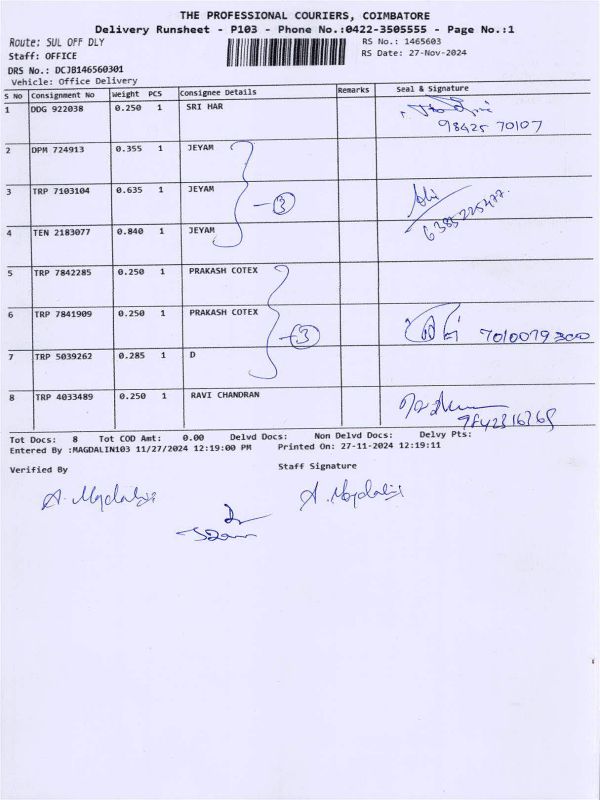 THE PROFESSIONAL COURIERS, COIMBATORE
Delivery Runsheet - P103 - Phone No.:0422-3505555 - Page No.:1
Route: SUL OFF DLY RS No.: 1465603
Staff: OFFICE RS Date: 27-Nov-2024
DRS No.: DCJB146560301
Vehicle: Office Delivery
S No Consignment No Weight PCS Consignee Details Remarks Seal & Signature
1 DDG 922038 0.250 1 SRI HAR
98425 70107
2 DPM 724913 0.355 1 JEYAM
3 TRP 7103104 0.635 1 JEYAM - 3
6385225477
4 TEN 2183077 0.840 1 JEYAM
5 TRP 7842285 0.250 1 PRAKASH COTEX
6 TRP 7841909 0.250 1 PRAKASH COTEX
- 3 7010079300
7 TRP 5039262 0.285 1 D
8 TRP 4033489 0.250 1 RAVI CHANDRAN
Tot Docs: 8 Tot COD Amt: 0.00 Delvd Docs: Non Delvd Docs: Delvy Pts:
Entered By :MAGDALIN103 11/27/2024 12:19:00 PM Printed On: 27-11-2024 12:19:11
Verified By Staff Signature
A. Magdalin A. Magdalin